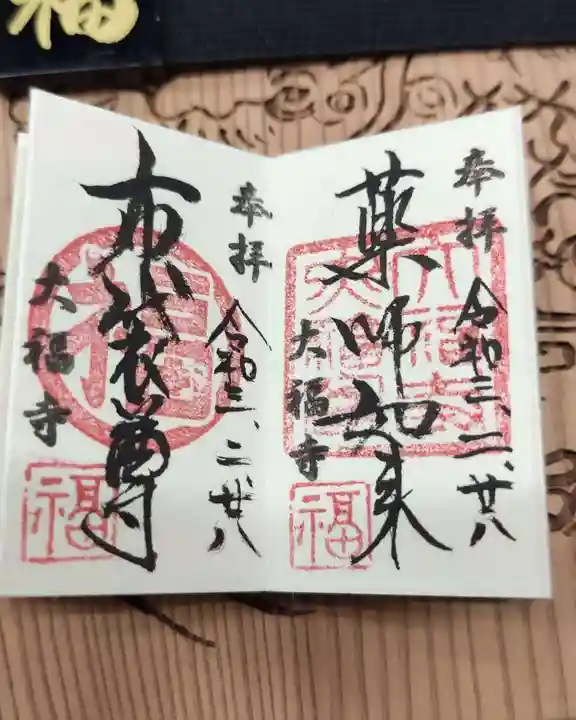 奉拝
令和三、二、廿八
薬師如来
大福寺
福
奉拝
令和三、二、廿八
布袋尊
大福寺
福
福
福